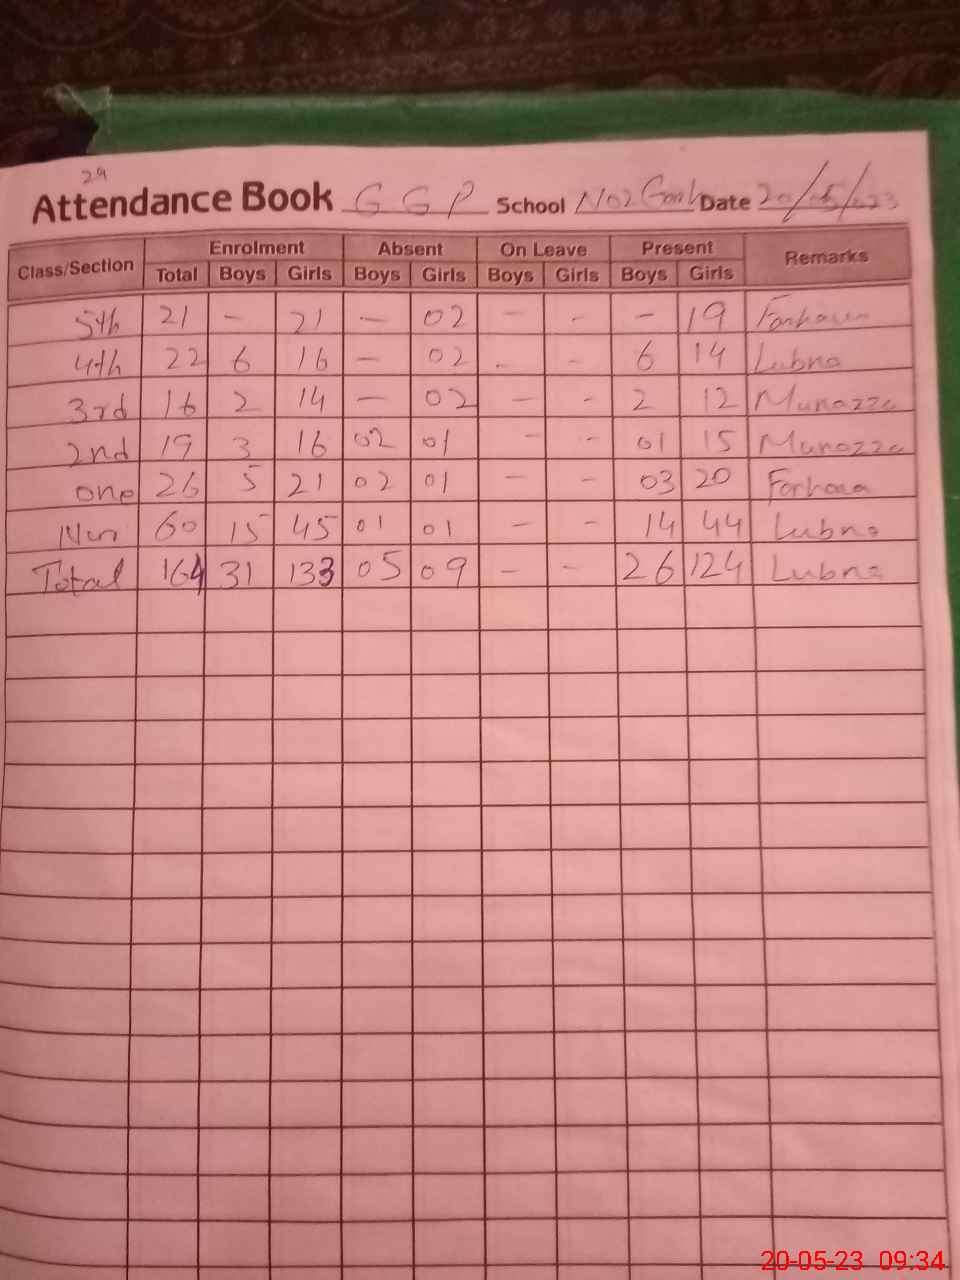 29
Attendance Book G G P School No2 Date 20/05/023
Class/Section Enrolment Absent On Leave Present Remarks
Total Boys Girls Boys Girls Boys Girls Boys Girls
5th 21 - 21 - 02 - - - 19
4th 22 6 16 - 02 - - 6 14 Lubna
3rd 16 2 14 - 02 - - 2 12 Munazza
2nd 19 3 16 02 01 - - 01 15 Munazza
one 26 5 21 02 01 - - 03 20 Farhana
Nur 60 15 45 01 01 - - 14 44 Lubna
Total 164 31 133 05 09 - - 26 124 Lubna
20-05-23 09:34